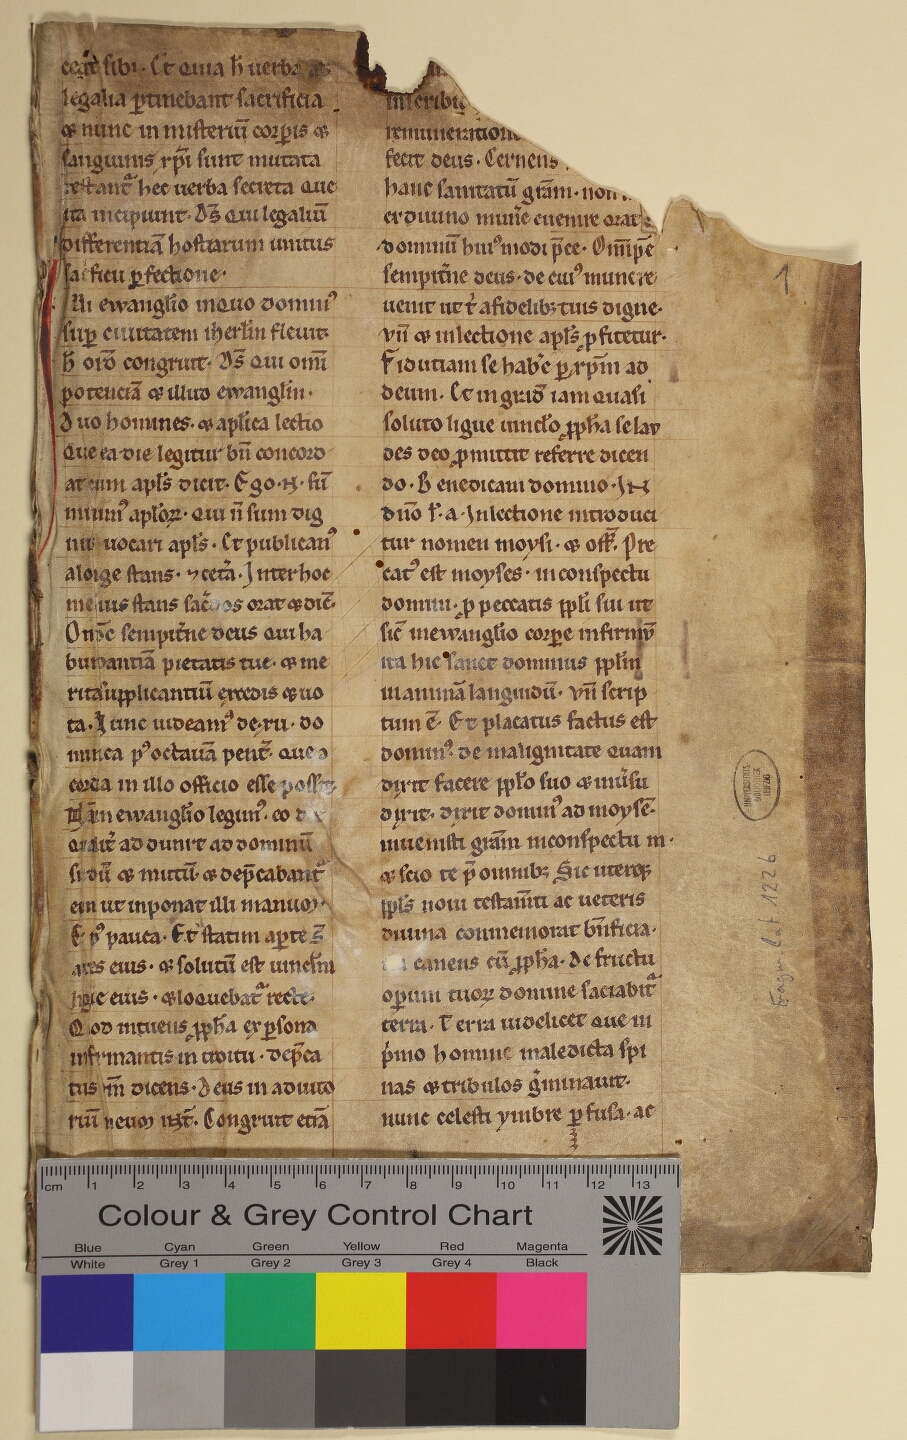 legalia ꝑtinebant sacrificia
⁊ nunc in misteriū corꝑis ⁊
sanguinis xp̄i sunt mutata
hec uerba secreta que
ita incipiunt. Dȝ qui legaliū
differentiā hostiarum unius
sacˢficii ꝑfectione.
In ewanglīo inquo dominꝰ
suꝑ ciuitatem iherlm̄ fleuit.
h̄ orō congruit. Dȝ qui omī
potenciā ⁊ illud ewangliū.
Duo homines. ⁊ aplīca lectio
que ea die legitur bn̄ concord
at cum apls̄ dicit. Ego. n̄. sū
minimꝰ aplōꝝ. qui n̄ sum dig
nus uocari apls̄. Et publicanꝰ
alonge stans. ⁊ cetā. Inter hoc
Om̄pc̄ sempitn̄e deus qui ha
bundantiā pietatis tue. ⁊ me
rita supplicantiū excedis ⁊ uo
ta. Nunc uideamꝰ de xii. do
minica pꝰ octauā pent̄. que
cordia in illo officio esse
Nam in ewanglīo legimꝰ. eo
ad dominū
surdū ⁊ mutū. ⁊ dep̄cabant᷑
eū ut inponat illi manum.
Et pꝰ pauca. Et statim aꝑte s̄
aures eius. ⁊ solutū est uincl̄m
lingue eius. ⁊ loquebat᷑ recte.
Quod intuens ꝓph̄a ex ꝑsona
infirmantis in troitu. dep̄ca
tus dicens. Deus in adiuto
riū meum int̄. Congruit etiā
inscribi
remuneratione
fecit deus. Cernens
hanc sanitatū grām. non
ex diuino mun̄e euenire orat
dominū huiꝰmodi p̄ce. Om̄pc̄
sempitn̄e deus. de cuiꝰ munere
uenit ut t᷑ afidelibȝ tuis digne.
vn̄ ⁊ inlectione apls̄ ꝓfitetur.
Fiduciam se hab̄e ꝑ xp̄m ad
deum. Et in grad̄ iam quasi
soluto ligue uinclo̅ ꝓph̄a se lau
des deo ꝓmittit referre dicen
do. Benedicam domino. IN
Inlectione introduci
tur nomen moysi. ⁊ off̄. Pre
catꝰ est moyses. inconspectu
domini. ꝓ peccatis ppl̄i sui ut
sic̄ inewanglīo corꝑe infirmū
ita hic sanet dominus ppl̄m
in anima languidū. vn̄ scrip
tum ē. Et placatus factus est
dominꝰ. de malignitate quam
dixit facere ppl̄o suo
dixit. dixit dominꝰ ad moysē.
inuenisti grām inconspectu m.
⁊ scio te p̄ omnibȝ. Sic uterqȝ
ppl̄s noui testam̄ti ac ueteris
diuina commemorat bn̄ficia.
canens cū ꝓph̄a. De fructu
oꝑum tuoꝝ domine saciabit᷑
terra. Terra uidelicet que in
p̄mo homine maledicta spi
nas ⁊ tribulos g̾minauit.
nunc celesti ymbre ꝑfusa. ac
1
Fragm. lat 1226
cm 1 2 3 4 5 6 7 8 9 10 11 12 13
Colour & Grey Control Chart
Blue Cyan Green Yellow Red Magenta
White Grey 1 Grey 2 Grey 3 Grey 4 Black